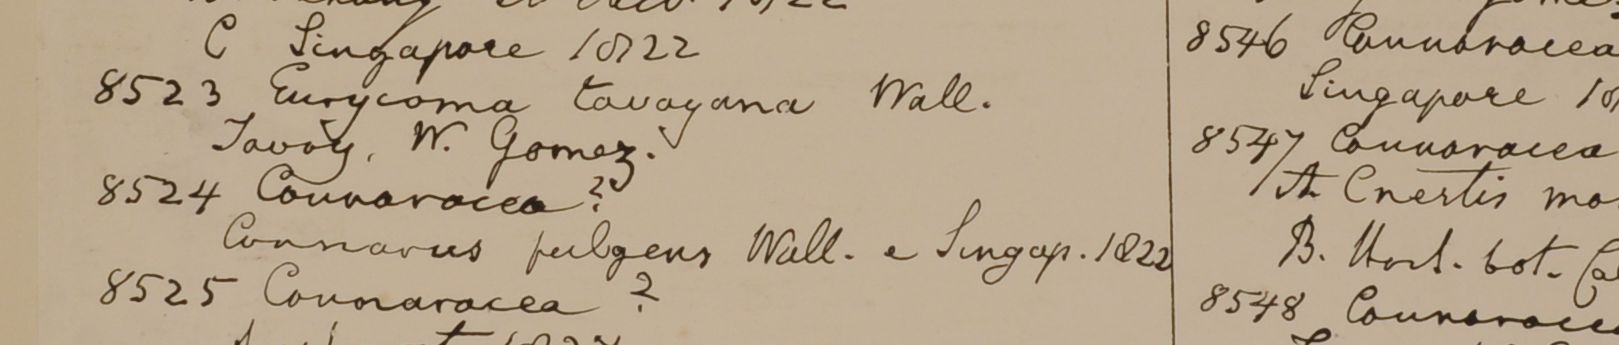 C Singapore 1822
8523 Eurycoma tavoyana Wall.
Tavoy, W. Gomez.
8524 Connaracea?
Connarus fulgens Wall. e Singap. 1822
8525 Connaracea ?
8546 Connaracea
Singapore
8547 Connaracea
Cnestis
B. Hort. bot.
8548